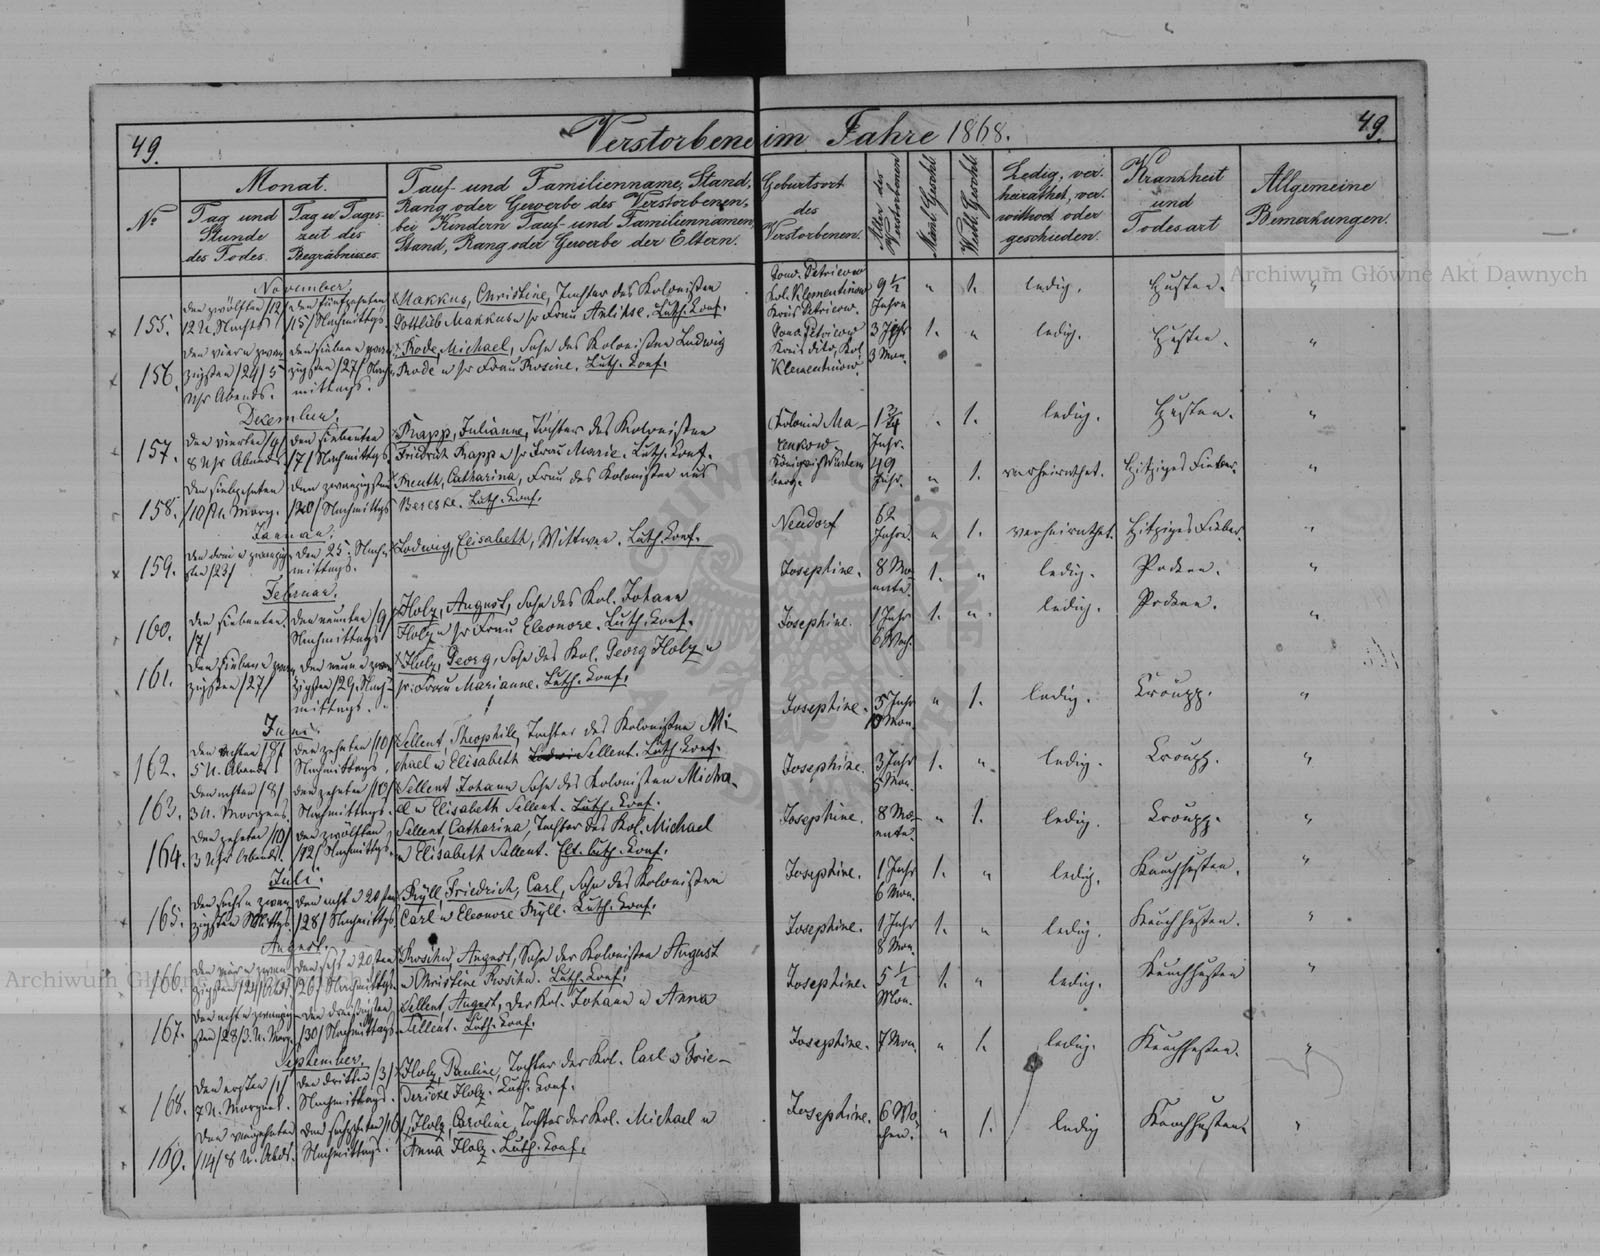 49.
Verstorbene im Jahre 1868.
49.
No
Monat.
Tag und Stunde des Todes.
Tag u. Tageszeit des Begräbnisses.
Tauf- und Familienname, Stand,
Rang oder Gewerbe des Verstorbenen,
bei Kindern Tauf- und Familiennamen,
Stand, Rang oder Gewerbe der Eltern.
Geburtsort
des
Verstorbenen.
Alter des Verstorbenen
Mänl. Geschl.
Weibl. Geschl.
Ledig, ver-
heirathet, ver-
wittwet oder
geschieden.
Krankheit
und
Todesart
Allgemeine
Bemerkungen.
November.
155.
den zwölften /12/
12 U. Nachts
den fünfzehnten
/15/ Nachmittgs.
Makkus, Christine, Tochter des Kolonisten
Gottlieb Makkus u sr Frau. Luth. Conf.
Gouv. Petricow
Kol. Klementinow
Kreis Petricow.
9 1/2
Jahre
"
1.
ledig.
Husten.
"
156.
den vier u zwan-
zigsten /24/ 5
Uhr Abends.
den sieben u zwan-
zigsten /27/ Nach-
mittags.
Rode, Michael, Sohn des Kolonisten Ludwig
Rode u sr Frau Rosine. Luth. Conf.
Gouv. Petricow
Kreis dito, Kol.
Klementinow.
3 Jahr
3 Mon.
1.
"
ledig.
Husten.
"
Dezember.
157.
den vierten /4/
8 Uhr Abends
den siebenten
/7/ Nachmittgs
Rapp, Julianne, Tochter des Kolonisten
Friedrich Rapp u sr Frau Marie. Luth. Conf.
Kolonie Ma-
Jahr.
1.
ledig.
Husten.
"
158.
den siebzehnten
/10/ U. Morg.
den zwanzigsten
/20/ Nachmittgs
Meuth, Catharina, Frau des Kolonisten aus
Bereske. Luth. Conf.
Königreich Würtem
berg.
49
Jahr.
"
1.
verheirathet.
Hitziges Fieber.
"
Januar.
159.
den drei u zwanzig-
sten /23/
den 25. Nach-
mittags.
Ludwig, Elisabeth, Wittwe. Luth. Conf.
Neudorf
62
Jahre.
"
1.
verheirathet.
Hitziges Fieber.
"
Februar.
160.
den siebenten
/7/
den neunten /9/
Nachmittags
Holz, August, Sohn des Kol. Johann
Holz u sr Frau Eleonore. Luth. Conf.
Josephine.
8 Mo-
nate.
1.
"
ledig.
Pocken.
"
161.
den sieben u zwan-
zigsten /27/
den neun u zwan-
zigsten /29. Nach-
mittags.
Holz, Georg, Sohn des Kol. Georg Holz u
sr Frau Marianne. Luth. Conf.
Josephine.
1 Jahr
6 Woch.
1.
"
ledig.
Pocken.
"
Juni.
162.
den achten /8/
5 U. Abends
den zehnten /10/
Nachmittags.
Sellent, Theophile, Tochter des Kolonisten Mi-
chael u Elisabeth Sellent. Luth. Conf.
Josephine.
5 Jahr
10 Mon.
"
1.
ledig.
Kroupp.
"
163.
den achten /8/
3 U. Morgens.
den zehnten /10/
Nachmittags.
Sellent Johann Sohn des Kolonisten Micha-
el u Elisabeth Sellent. Luth. Conf.
Josephine.
3 Jahr
5 Mon.
1.
"
ledig.
Kroupp.
"
164.
den zehnten /10/
3 Uhr Abends.
den zwölften
/12/ Nachmittgs.
Sellent, Catharina, Tochter des Kol. Michael
u Elisabeth Sellent. Luth. Conf.
Josephine.
8 Mo-
nate.
"
1.
ledig.
Kroupp.
"
Juli.
165.
den sechs u zwan-
zigsten
den acht u 20sten
/28/ Nachmittgs.
Kryll, Friedrich, Carl, Sohn des Kolonisten
Carl u Eleonore Kryll. Luth. Conf.
Josephine.
1 Jahr
6 Mon.
1.
"
ledig.
Keuchhusten.
"
August.
166.
den vier u zwan-
zigsten /24/
den sechs u 20sten
/26/ Nachmittgs.
Rosihn, August, Sohn der Kolonisten August
u Christine Rosihn. Luth. Conf.
Josephine.
1 Jahr
8 Mon.
1.
"
ledig.
Keuchhusten.
"
167.
den acht u zwanzig-
sten /28/ 3. U. Morg.
den dreißigsten
/30/ Nachmittags
Sellent, August, der Kol. Johann u Anna
Sellent. Luth. Conf.
Josephine.
5 1/2
Mon.
1.
"
ledig.
Keuchhusten
"
September.
168.
den ersten /1/
7 U. Morgens.
den dritten /3/
Nachmittags.
Holz, Pauline, Tochter der Kol. Carl u Frie-
dericke Holz. Luth. Conf.
Josephine.
7 Mon.
"
1.
ledig.
Keuchhusten.
"
169.
den vierzehnten
/14/ 8 U. Abds.
den sechzehnten /16/
Nachmittags.
Holz, Caroline, Tochter der Kol. Michael u
Anna Holz. Luth. Conf.
Josephine.
6 Wo-
chen.
"
1.
ledig
Keuchhusten.
"
Archiwum Główne Akt Dawnych
Archiwum Główne Akt Dawnych